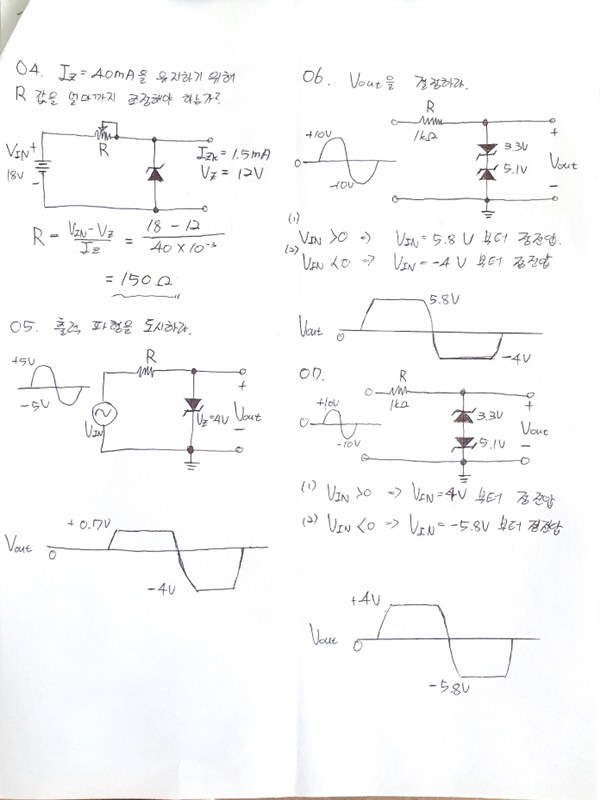 04. Iz = 40mA을 유지하기 위해
R 값을 얼마까지 조절해야 하는가?
VIN +
18V -
R
Izk = 1.5mA
Vz = 12V
R = (VIN - Vz) / Iz = (18 - 12) / (40 × 10⁻³)
= 150Ω
05. 출력 파형을 도시하라.
+5V
-5V
VIN
R
Vz=4V
+
Vout
-
+0.7V
Vout
0
-4V
06. Vout을 결정하라.
R
1kΩ
+10V
0
-10V
3.3V
5.1V
+
Vout
-
(1) VIN > 0 => VIN = 5.8 V 부터 정전압.
(2) VIN < 0 => VIN = -4 V 부터 정전압
5.8V
Vout
0
-4V
07.
R
1kΩ
+10V
0
-10V
3.3V
5.1V
+
Vout
-
(1) VIN > 0 => VIN = 4V 부터 정전압
(2) VIN < 0 => VIN = -5.8V 부터 정전압
+4V
Vout
0
-5.8V